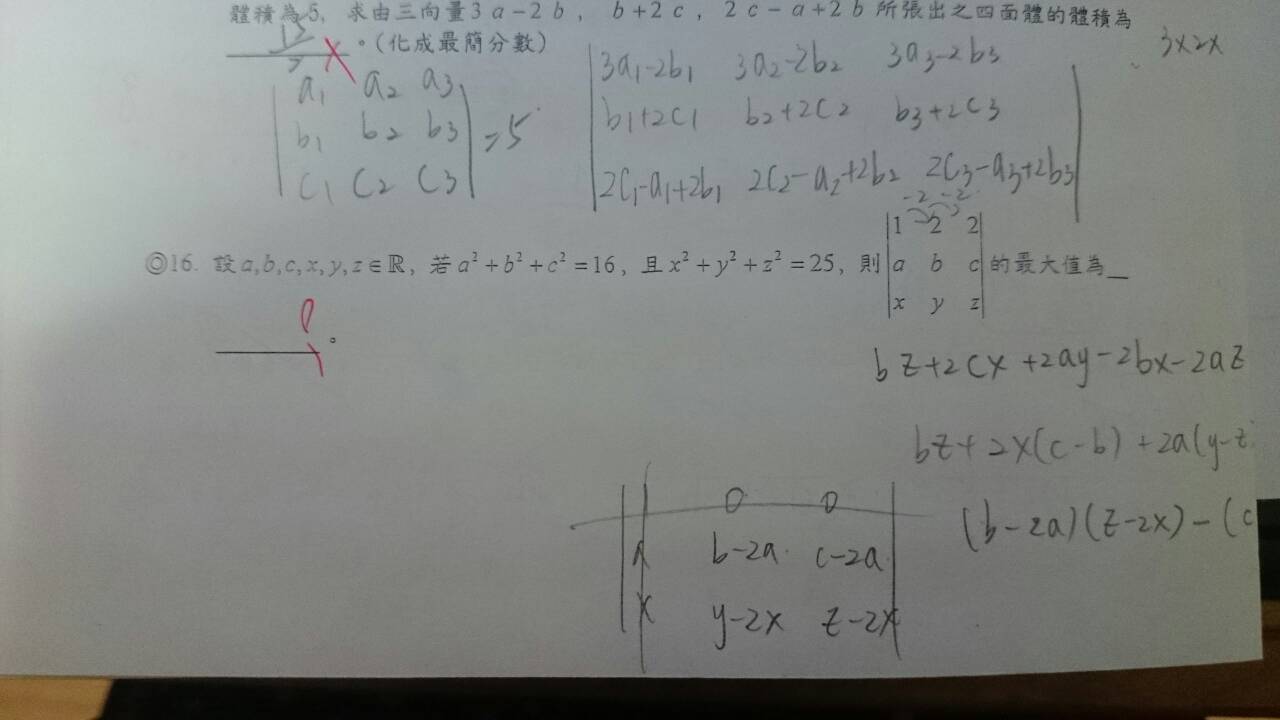 體積為 5, 求由三向量 3 a − 2 b , b + 2 c , 2 c − a + 2 b 所張出之四面體的體積為
。(化成最簡分數)
3x2x
a₁ a₂ a₃
b₁ b₂ b₃ = 5
c₁ c₂ c₃
3a₁-2b₁ 3a₂-2b₂ 3a₃-2b₃
b₁+2c₁ b₂+2c₂ b₃+2c₃
2c₁-a₁+2b₁ 2c₂-a₂+2b₂ 2c₃-a₃+2b₃
-2 -2
◎16. 設 a,b,c,x,y,z∈ℝ, 若 a²+b²+c²=16, 且 x²+y²+z²=25, 則 |1 2 2| 的最大值為
|a b c|
|x y z|
。
bz+2cx+2ay-2bx-2az
bz+2x(c-b)+2a(y-z
(b-2a)(z-2x)-(c
0 0
b-2a c-2a
x y-2x z-2x